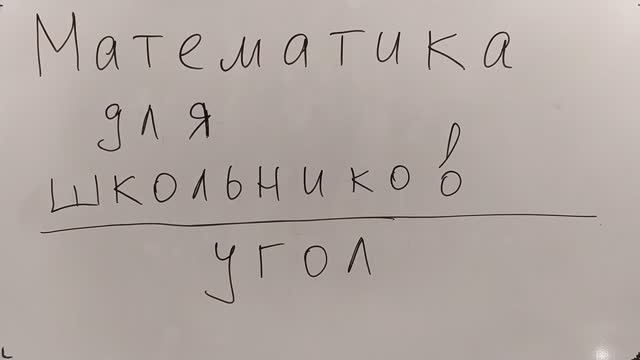 Математика
для
школьников
угол